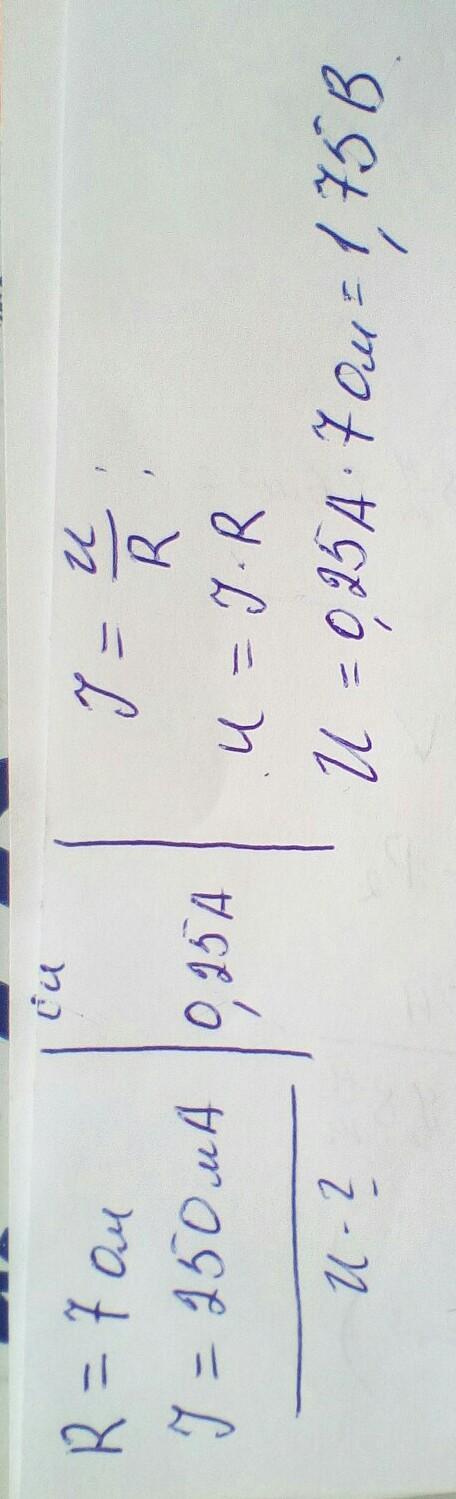 R = 7 ом
J = 250 мА
U - ?
си
0,25 А
J = U/R ;
U = J · R
U = 0,25А · 7 ом = 1,75 В